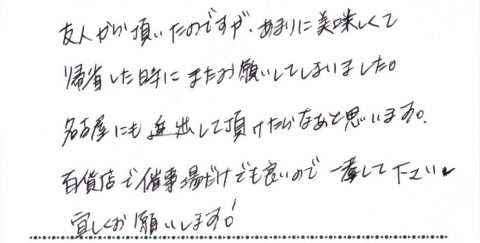 友人から頂いたのですが、あまりに美味しくて
帰省した時にまたお願いしてしまいました。
名古屋にも進出して頂けたらなあと思います。
百貨店で催事場だけでも良いので 一 して下さい
宜しくお願いします！